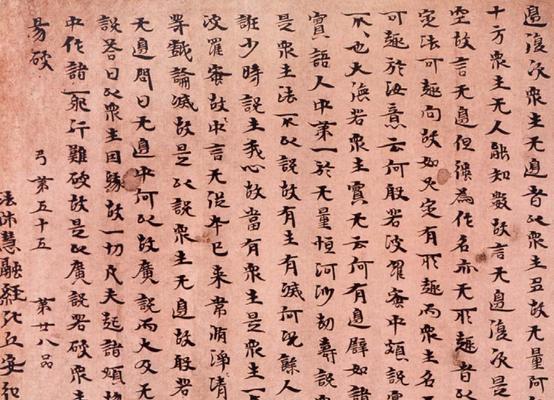 邊復次衆生无邊者以衆生多故无量阿
十方衆生无人能知數故言无邊復次是
空故言无邊但强為作名亦无所趣者以
定法可趣向故如火定有所趣而衆生名
可趣於汝意云何般若波羅蜜中頗說
不不也大德若衆生實无云何有邊譬如諸
實語人中第一於无量恒河沙劫壽說衆
是衆生法不以說故有生有滅何况餘人
誑少時說生我心故當有衆生是衆生一
波羅蜜故中言无從本已來常清淨
等戲論滅故是以說衆生无邊故般若
无邊問曰无邊中何以故廣說而大及无
說答曰以衆生因緣故一切凡夫起諸煩
中作諸邪行難破故是以廣說若破衆生
易破
弓第五十五 第廿八品
法師慧融經比丘安弘